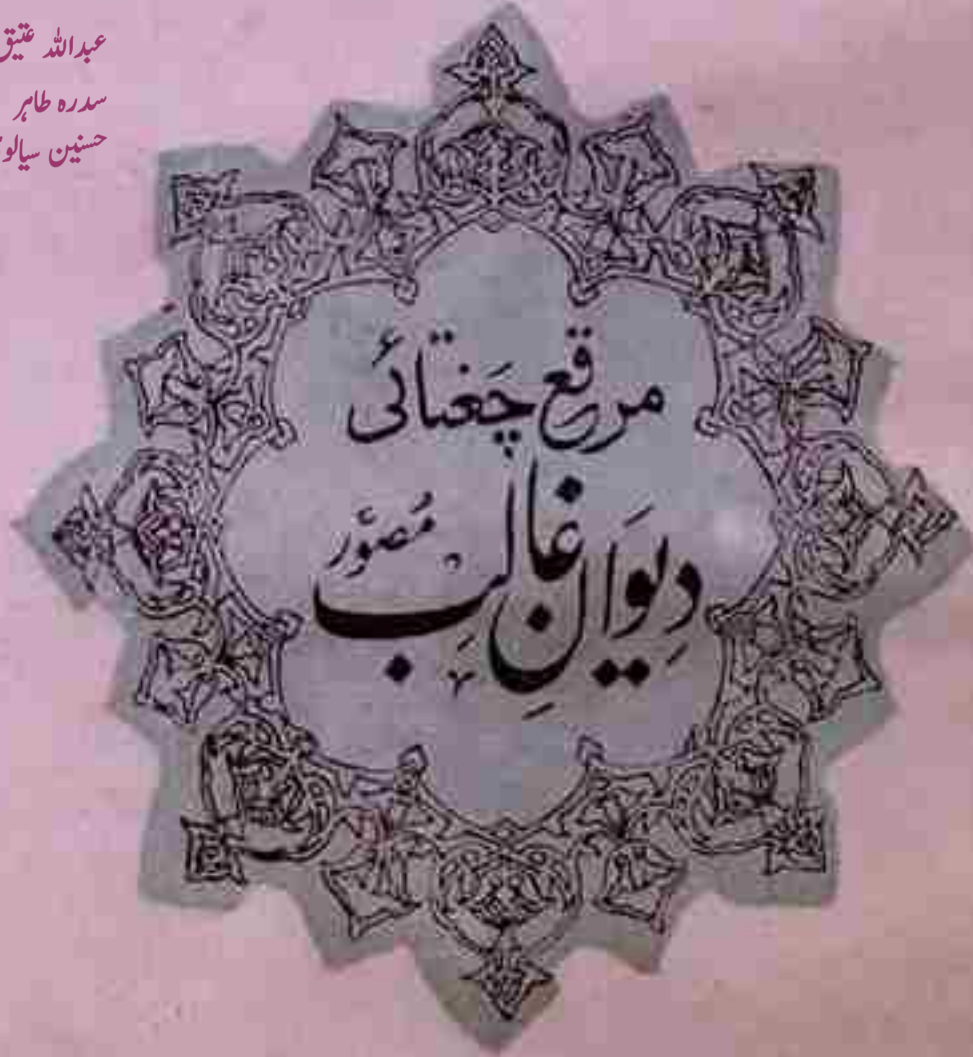 عبداللہ عتیق
سدرہ طاہر
حسنین سیالو
مرقع چغتائی
دیوانِ غالب مُصوّر